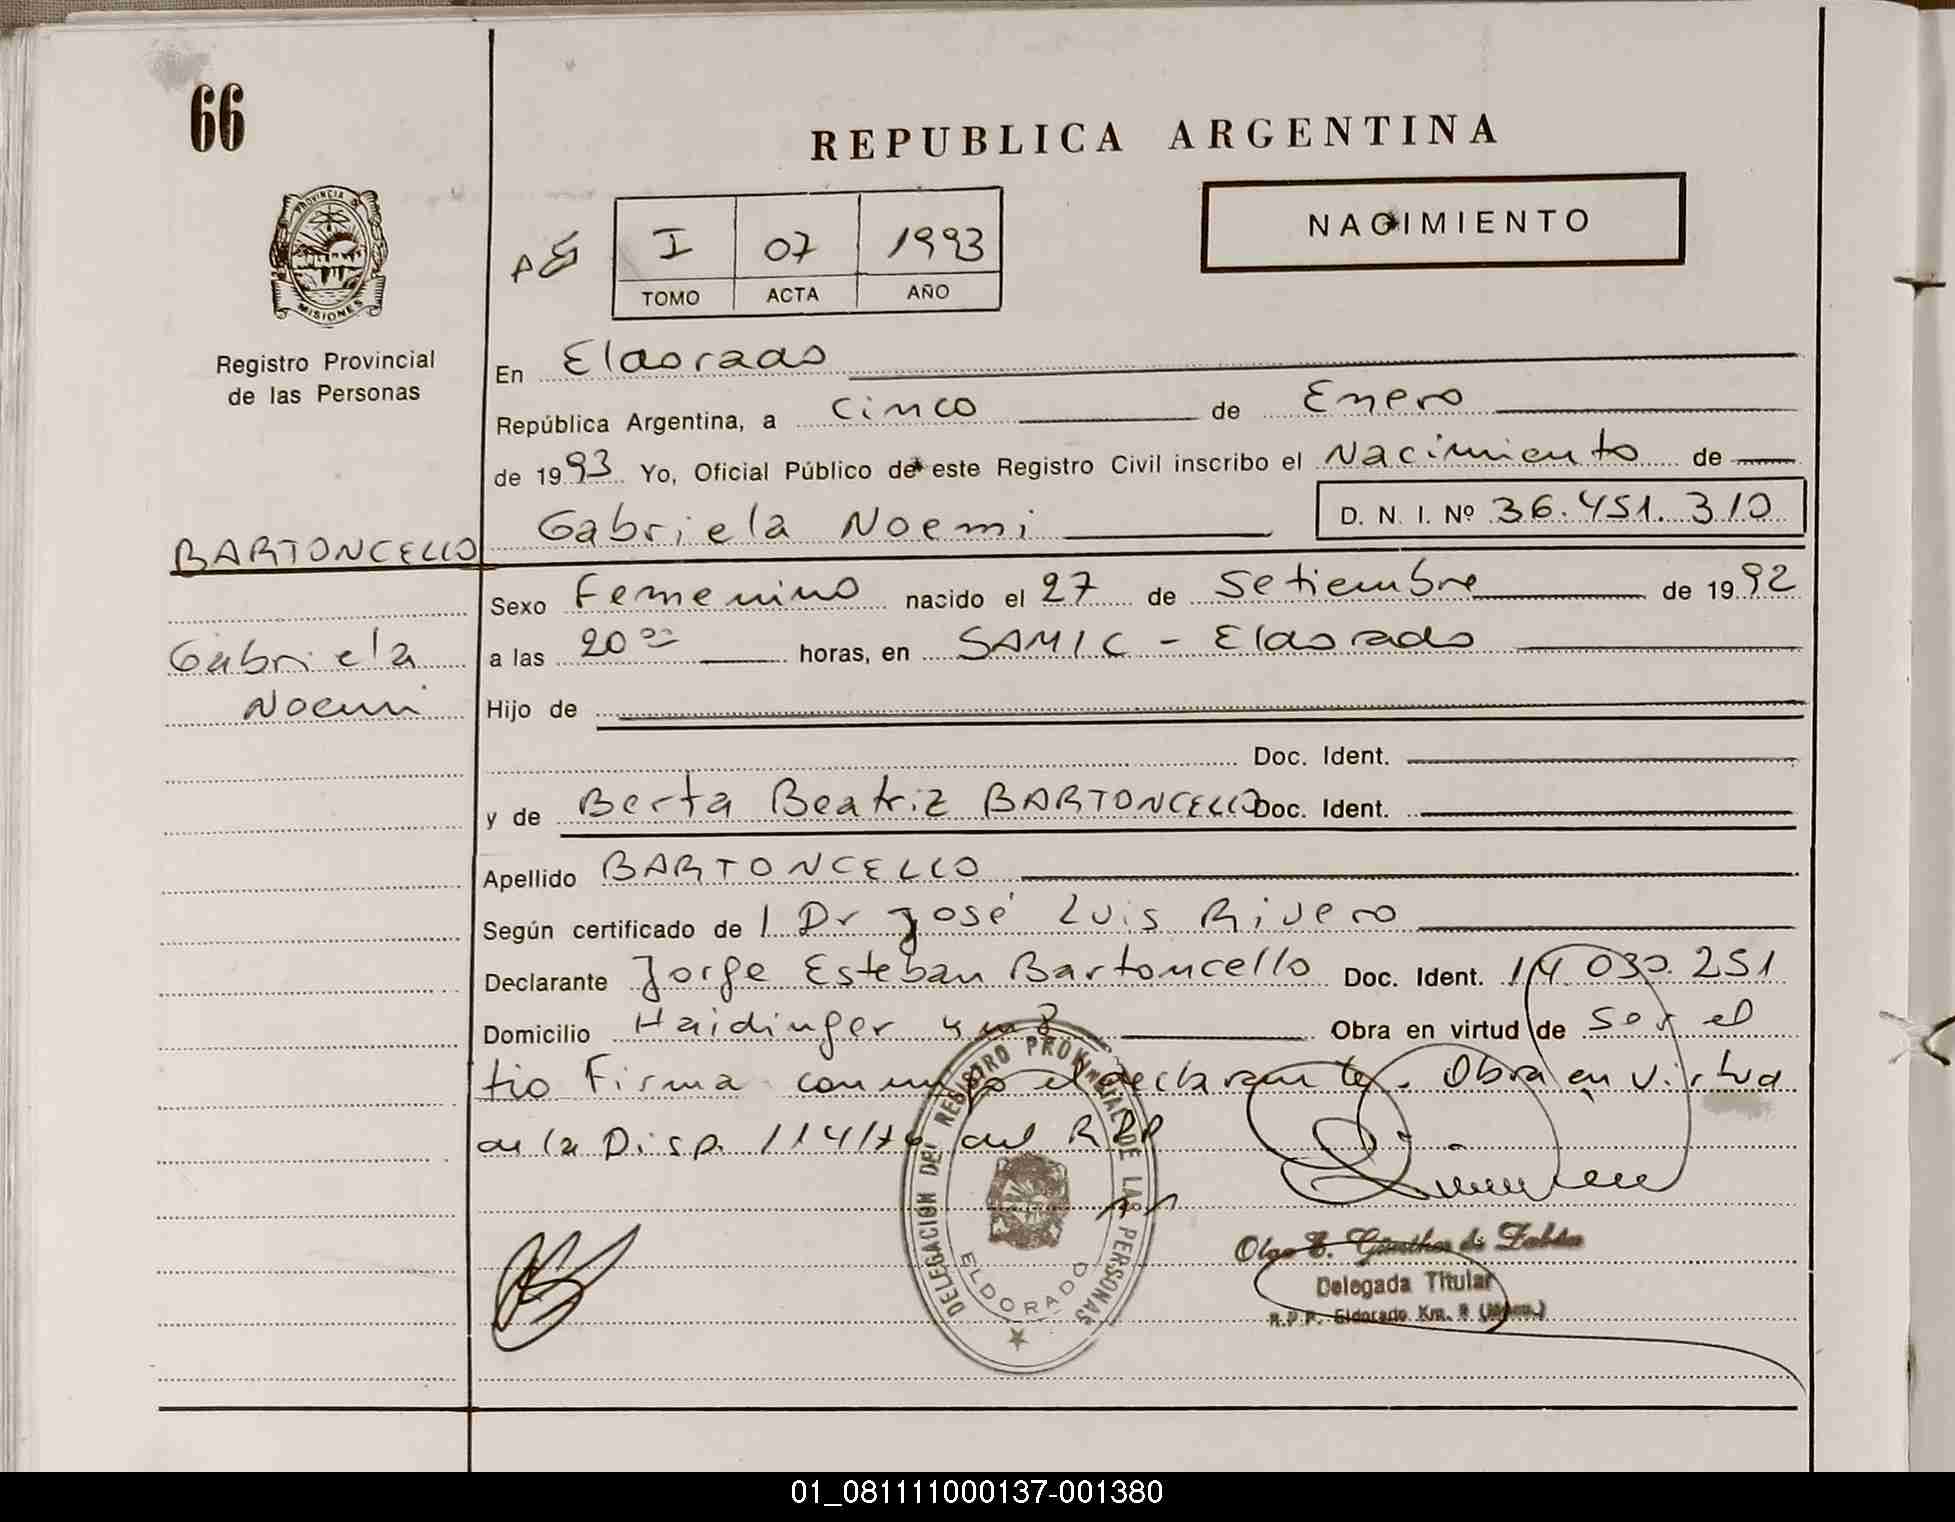 66
REPUBLICA ARGENTINA
NACIMIENTO
PROVINCIA DE
MISIONES
I 07 1993
TOMO ACTA AÑO
Registro Provincial
de las Personas
En Eldorado
República Argentina, a cinco de Enero
de 1993 Yo, Oficial Público de este Registro Civil inscribo el Nacimiento de
Gabriela Noemi D. N. I. Nº 36.451.310
BARTONCELLO
Gabriela
Noemi
Sexo Femenino nacido el 27 de Setiembre de 1992
a las 20 00 horas, en SAMIC - Eldorado
Hijo de
Doc. Ident.
y de Berta Beatriz BARTONCELLO Doc. Ident.
Apellido BARTONCELLO
Según certificado de l Dr José Luis Rivero
Declarante Jorge Esteban Bartoncello Doc. Ident. 14.030.251
Domicilio Haidinger km 8 Obra en virtud de ser el
tio Firma conmigo el declarante. Obra en virtud
de la Disp. 114/76 del RPP
DELEGACION DEL REGISTRO PROVINCIAL DE LAS PERSONAS
ELDORADO
Olga E. Günther de
Delegada Titular
R.P.P. Eldorado Km. 8 (Mnes.)
01_081111000137-001380